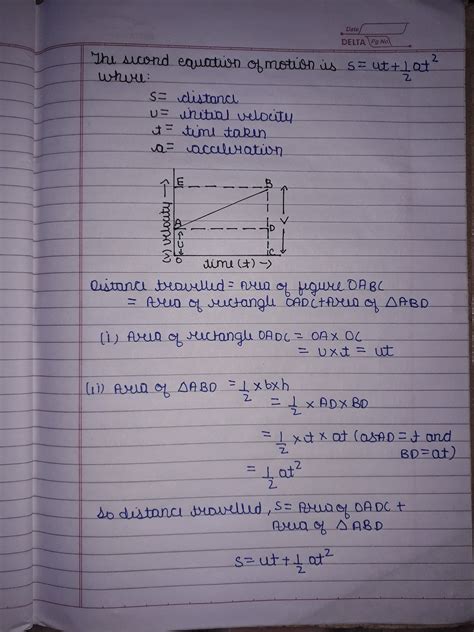 Date
DELTA Pg No
The second equation of motion is s = ut + 1/2 at²
where:
s = distance
u = initial velocity
t = time taken
a = acceleration
E B
(v) velocity →
A D
u v
O C
time (t) →
Distance travelled = Area of figure OABC
= Area of rectangle OADC + Area of △ABD
(i) Area of rectangle OADC = OA × OC
= u × t = ut
(ii) Area of △ABD = 1/2 × b × h
= 1/2 × AD × BD
= 1/2 × t × at (as AD = t and
BD = at)
= 1/2 at²
So distance travelled, s = Area of OADC +
Area of △ABD
s = ut + 1/2 at²